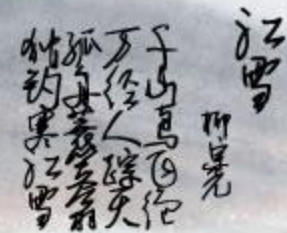 江雪
柳宗元
千山鸟飞绝
万径人踪灭
孤舟蓑笠翁
独钓寒江雪